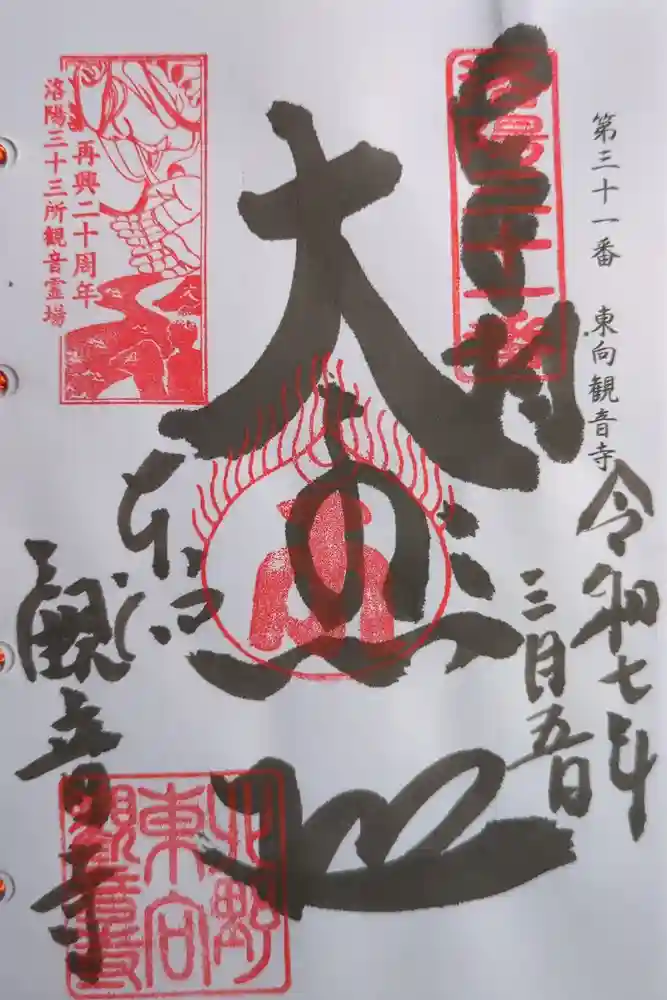 第三十一番 東向観音寺
令和七年
三月五日
奉拝
洛陽三十一番
大悲殿
東向
観音寺
再興二十周年
洛陽三十三所観音霊場
北野
東向
観音寺